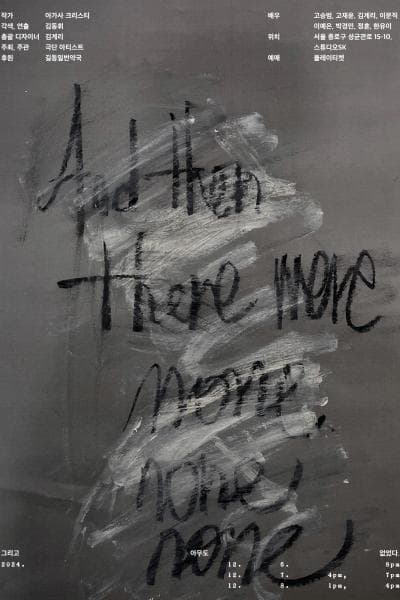 작가 아가사 크리스티
각색, 연출 김동휘
총괄 디자이너 김계리
주최, 주관 극단 아티스트
후원 길동일반약국
배우 고승범, 고재윤, 김계리, 이문직
이예은, 박경민, 정훈, 한유이
위치 서울 종로구 성균관로 15-10,
스튜디오SK
예매 플레이티켓
And then
There were
none
none
none
그리고 아무도 없었다.
2024. 12. 6. 8pm
12. 7. 4pm, 7pm
12. 8. 1pm, 4pm